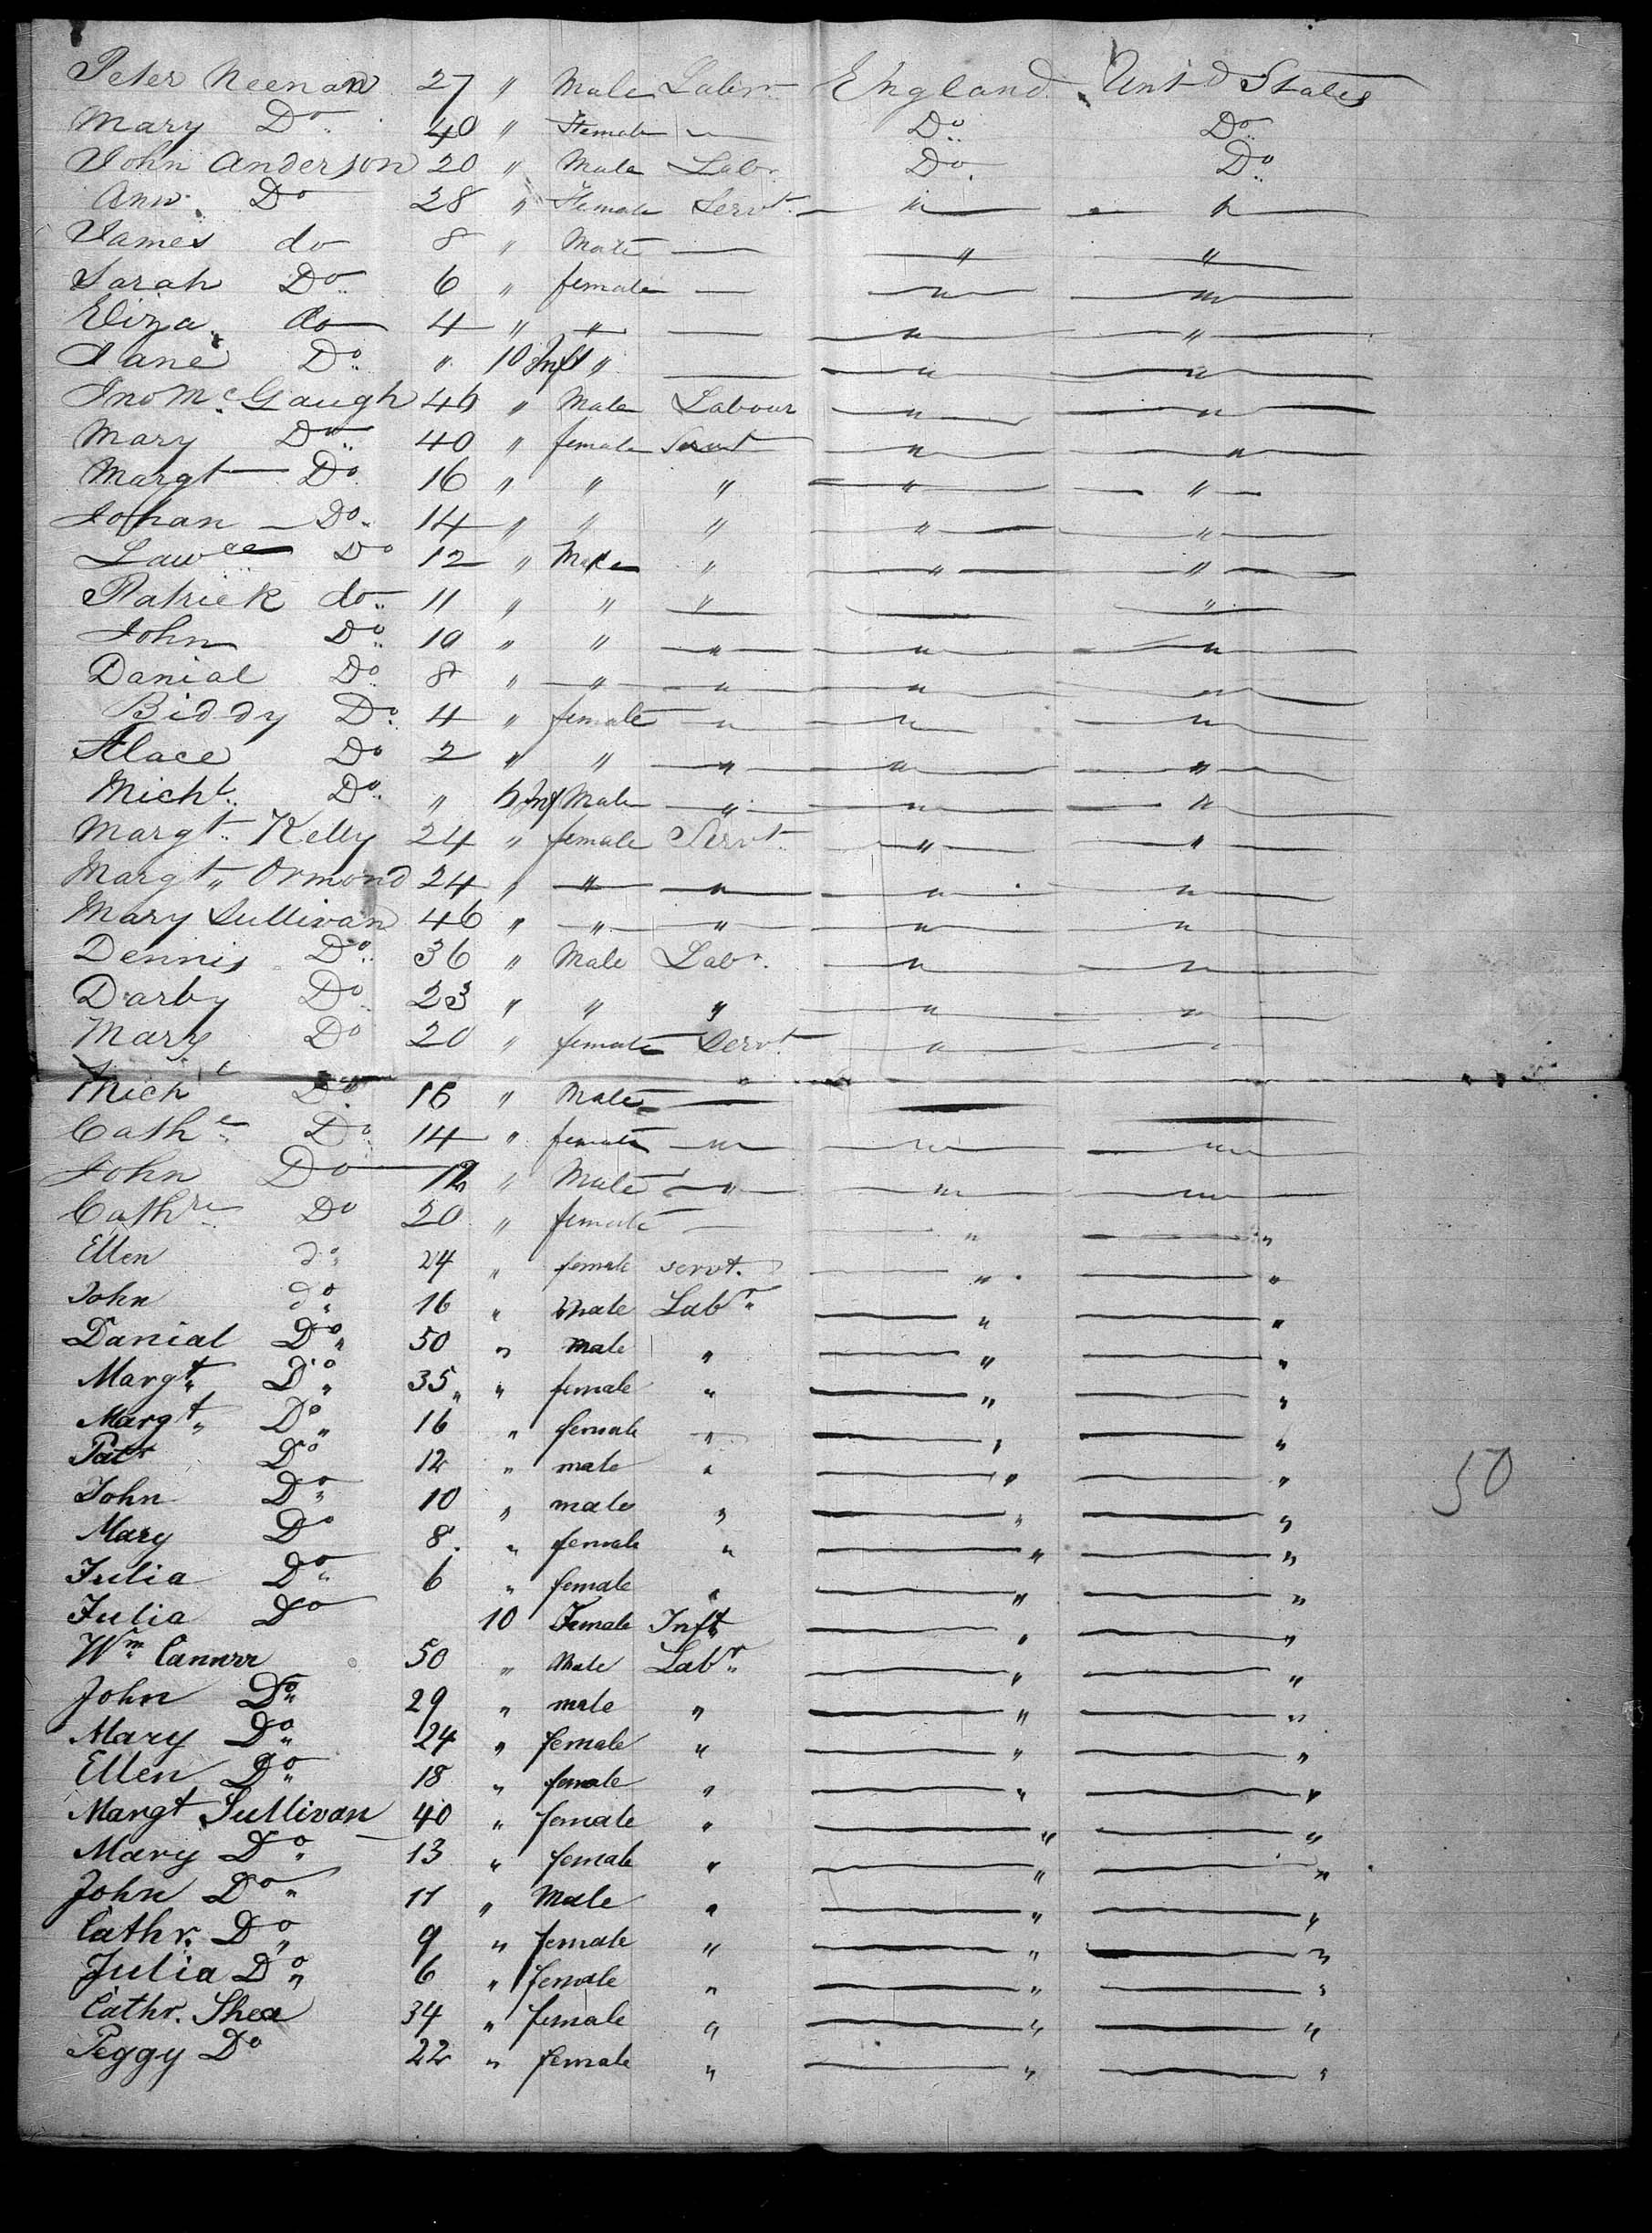 Peter Neenan 27 " Male Labr England Unt d States
Mary Do 40 " Female — Do Do
John Anderson 20 " Male Labr Do Do
Ann Do 28 " Female Servt " "
James do 8 " Male — " "
Sarah Do 6 " female — " "
Eliza do 4 " " — " "
Jane Do " 10 Inft " — " "
Jno McGaugh 46 " Male Labour " "
Mary Do 40 " female Servt " "
Margt Do 16 " " " " "
Johan Do 14 " " " " "
Lawce Do 12 " Male " " "
Patrick do 11 " " " — "
John Do 10 " " " " "
Danial Do 8 " " " " "
Biddy Do 4 " female " " "
Alace Do 2 " " " " "
Michl Do " Inf Male " " "
Margt Kelly 24 " female Servt " "
Margt Ormond 24 " " " " "
Mary Sullivan 46 " " " " "
Dennis Do 36 " Male Labr " "
Darby Do 23 " " " " "
Mary Do 20 " female Servt " "
Michl Do 16 " Male — — —
Cathe Do 14 " female " " "
John Do 12 " Male " " "
Cathre Do 20 " female — " "
Ellen do 24 " female servt. " "
John do 16 " Male Labr " "
Danial Do 50 " Male " " "
Margt Do 35 " female " " "
Margt Do 16 " female " " "
Patr Do 12 " male " " "
John Do 10 " male " " "
50
Mary Do 8 " female " " "
Julia Do 6 " female " " "
Julia Do 10 Female Inft " "
Wm 50 " Male Labr " "
John Do 29 " male " " "
Mary Do 24 " female " " "
Ellen Do 18 " female " " "
Margt Sullivan 40 " female " " "
Mary Do 13 " female " " "
John Do 11 " Male " " "
Cathr. Do 9 " female " " "
Julia Do 6 " female " " "
Cathr. Shea 34 " female " " "
Peggy Do 22 " female " " "